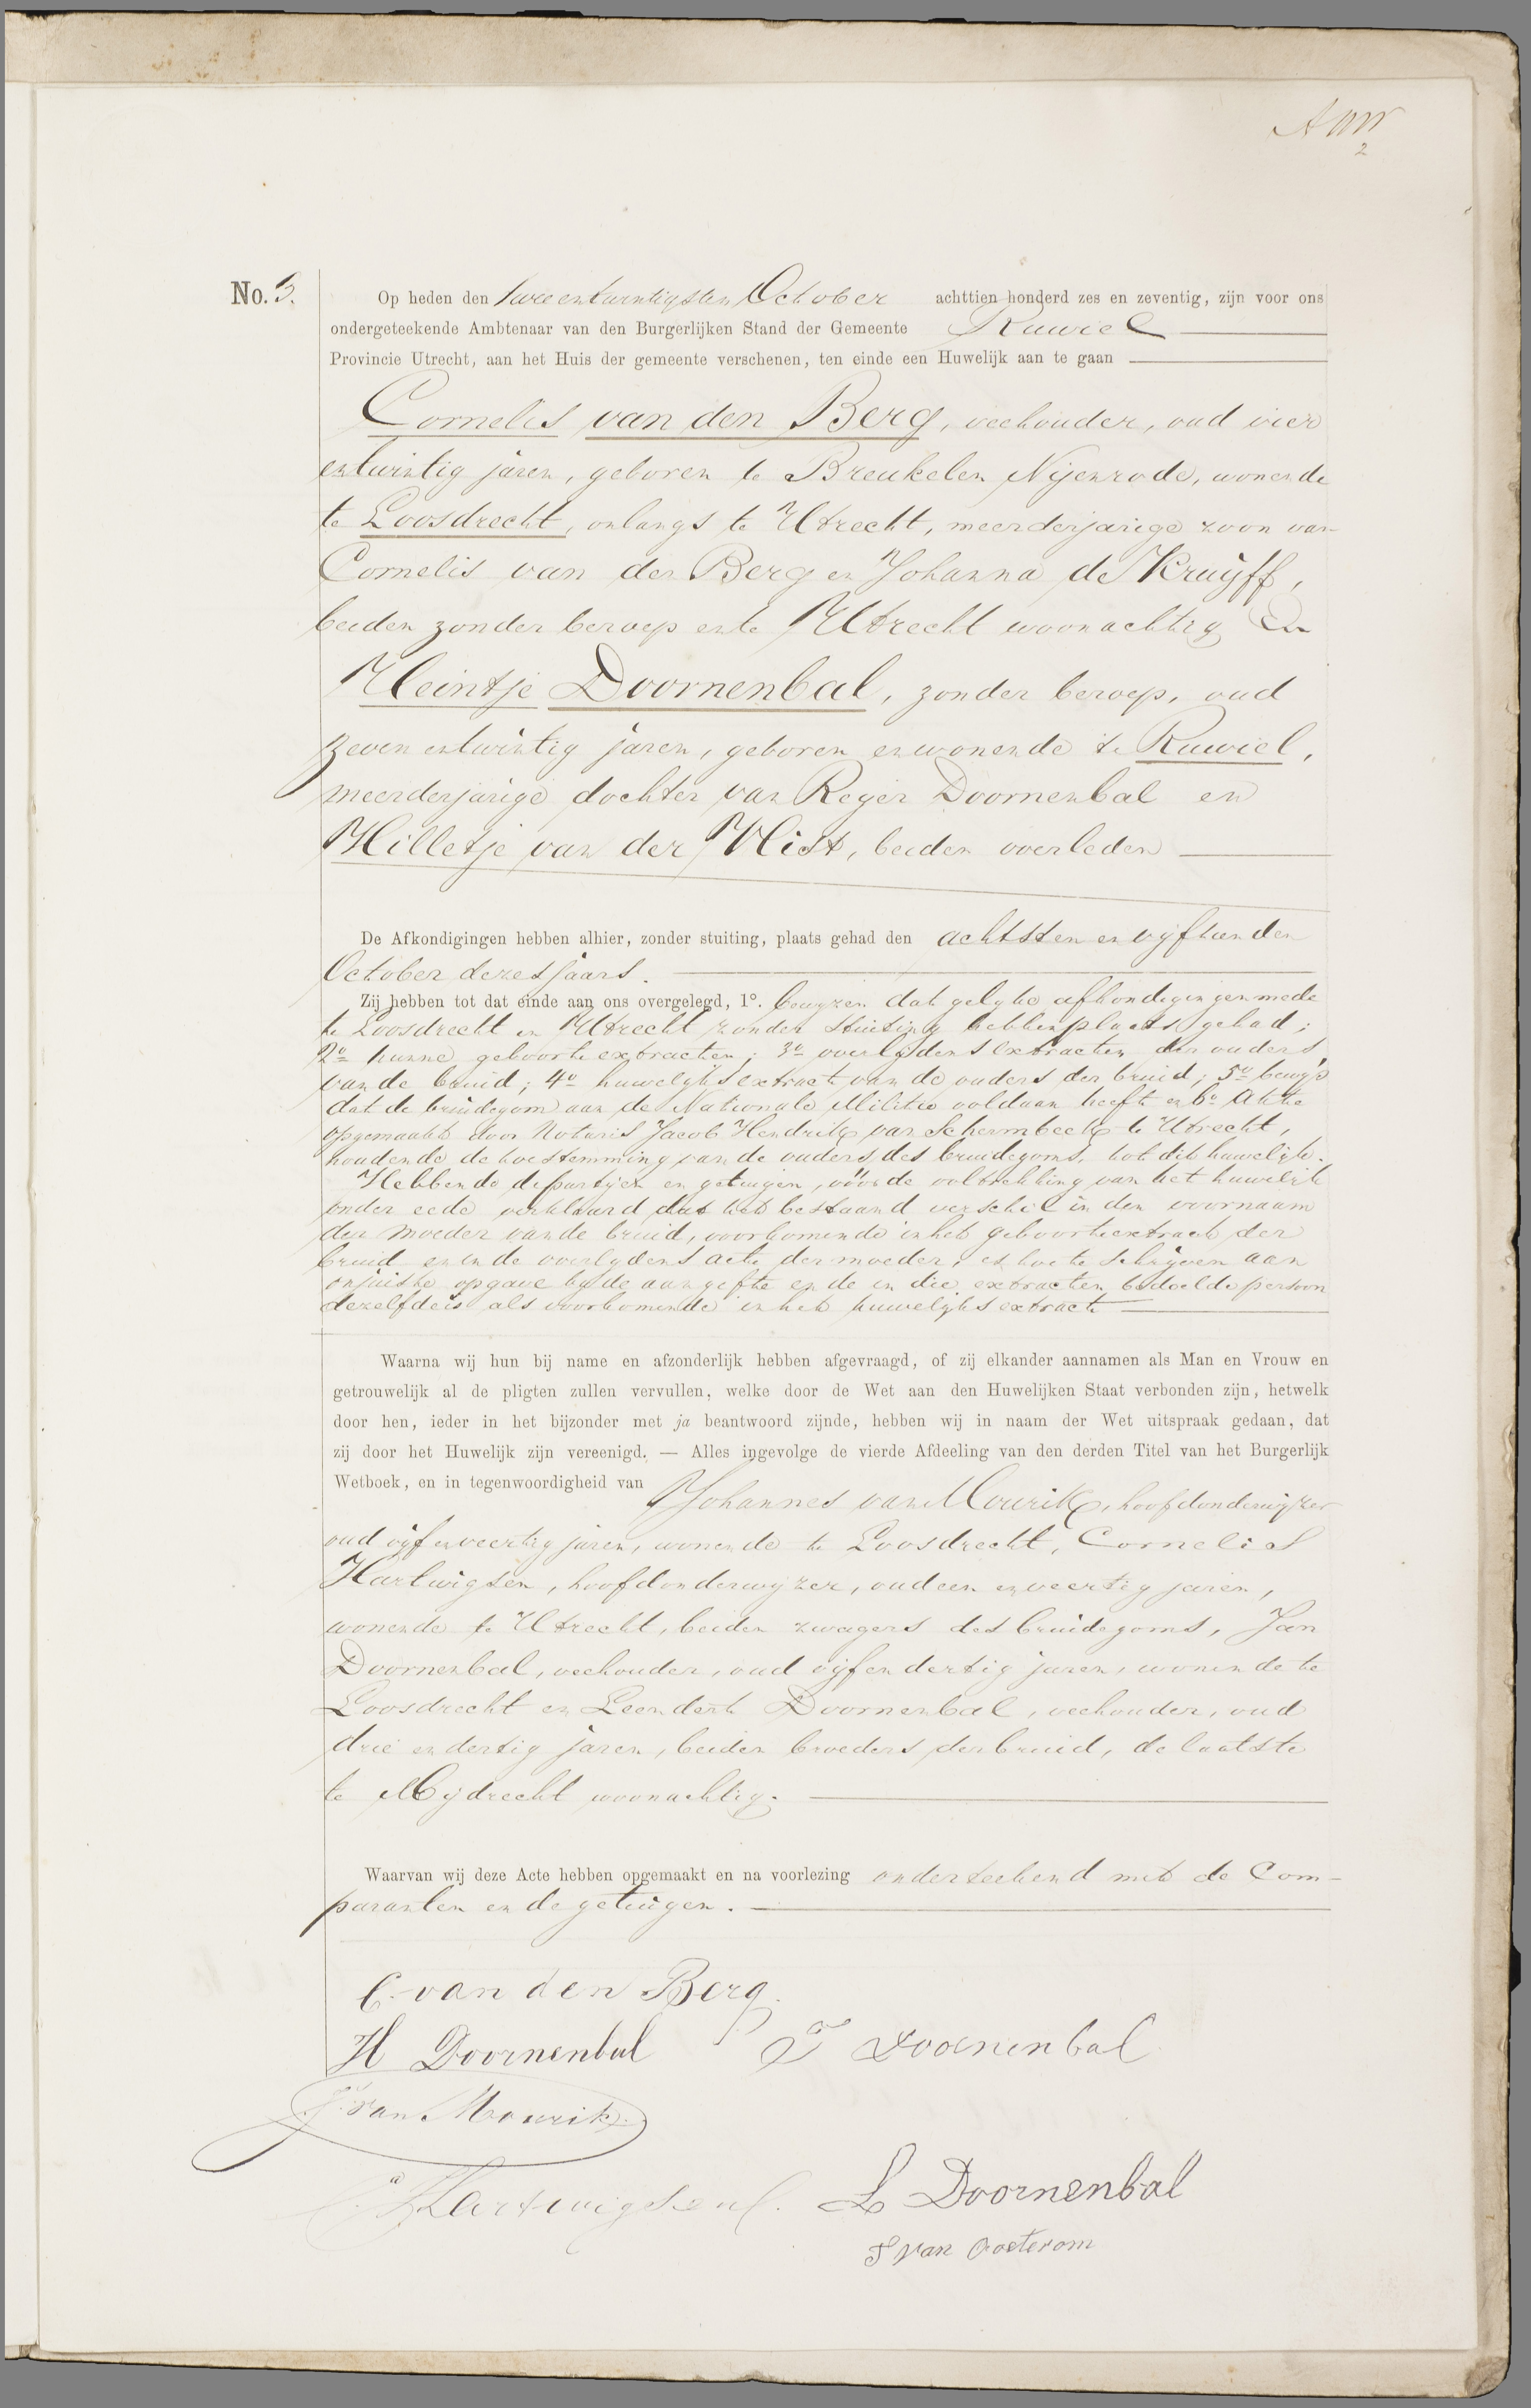 2
No. 3.
Op heden den twee en twintigsten October achttien honderd zes en zeventig, zijn voor ons
ondergeteekende Ambtenaar van den Burgerlijken Stand der Gemeente Ruwiel
Provincie Utrecht, aan het Huis der gemeente verschenen, ten einde een Huwelijk aan te gaan
Cornelis van den Berg, veehouder, oud vier
entwintig jaren, geboren te Breukelen Nijenrode, wonende
te Loosdrecht, onlangs te Utrecht, meerderjarige zoon van
Cornelis van den Berg en Johanna de Kruijff,
beiden zonder beroep en te Utrecht woonachtig En
Heintje Doornenbal, zonder beroep, oud
zeven entwintig jaren, geboren en wonende te Ruwiel,
meerderjarige dochter van Reijer Doornenbal en
Hilletje van der Vlist, beiden overleden
De Afkondigingen hebben alhier, zonder stuiting, plaats gehad den achtsten en vijftienden
October dezes jaars.
Zij hebben tot dat einde aan ons overgelegd, 1°. bewyzen dat gelyke afkondigingen mede
te Loosdrecht en Utrecht zonder stuiting hebben plaats gehad;
2o hunne geboorte extracten; 3o overlydens extracten der ouders
van de bruid; 4o huwelyks extract van de ouders der bruid; 5o bewys
dat de bruidegom aan de Nationale Militie voldaan heeft en 6o Akte
opgemaakt door Notaris Jacob Hendrik van Schermbeek te Utrecht,
houdende de toestemming van de ouders des bruidegoms, tot dit huwelyk.
Hebbende de partyen en getuigen, vóór de voltrekking van het huwelijk
onder eede verklaard dat het bestaand verschil in den voornaam
der moeder van de bruid, voorkomende in het geboorteextract der
bruid en in de overlydens acte der moeder, is toe te schrijven aan
onjuiste opgave by de aangifte en de in die extracten bedoelde persoon
dezelfde is als voorkomende in het huwelyks extract
Waarna wij hun bij name en afzonderlijk hebben afgevraagd, of zij elkander aannamen als Man en Vrouw en
getrouwelijk al de pligten zullen vervullen, welke door de Wet aan den Huwelijken Staat verbonden zijn, hetwelk
door hen, ieder in het bijzonder met ja beantwoord zijnde, hebben wij in naam der Wet uitspraak gedaan, dat
zij door het Huwelijk zijn vereenigd. — Alles ingevolge de vierde Afdeeling van den derden Titel van het Burgerlijk
Wetboek, en in tegenwoordigheid van Johannes van Mourik, hoofdonderwijzer
oud vijf en veertig jaren, wonende te Loosdrecht, Cornelis
Hartwigsen, hoofdonderwyzer, oud een en veertig jaren,
wonende te Utrecht, beiden zwagers des bruidegoms, Jan
Doornenbal, veehouder, oud vijf en dertig jaren, wonende te
Loosdrecht en Leendert Doornenbal, veehouder, oud
drie en dertig jaren, beiden broeders der bruid, de laatste
te Mijdrecht woonachtig.
Waarvan wij deze Acte hebben opgemaakt en na voorlezing onderteekend met de Com-
paranten en de getuigen.
C. van den Berg
H Doornenbal J Doornenbal
J. van Mourik
Hartwigsen L Doornenbal
J van Oosterom